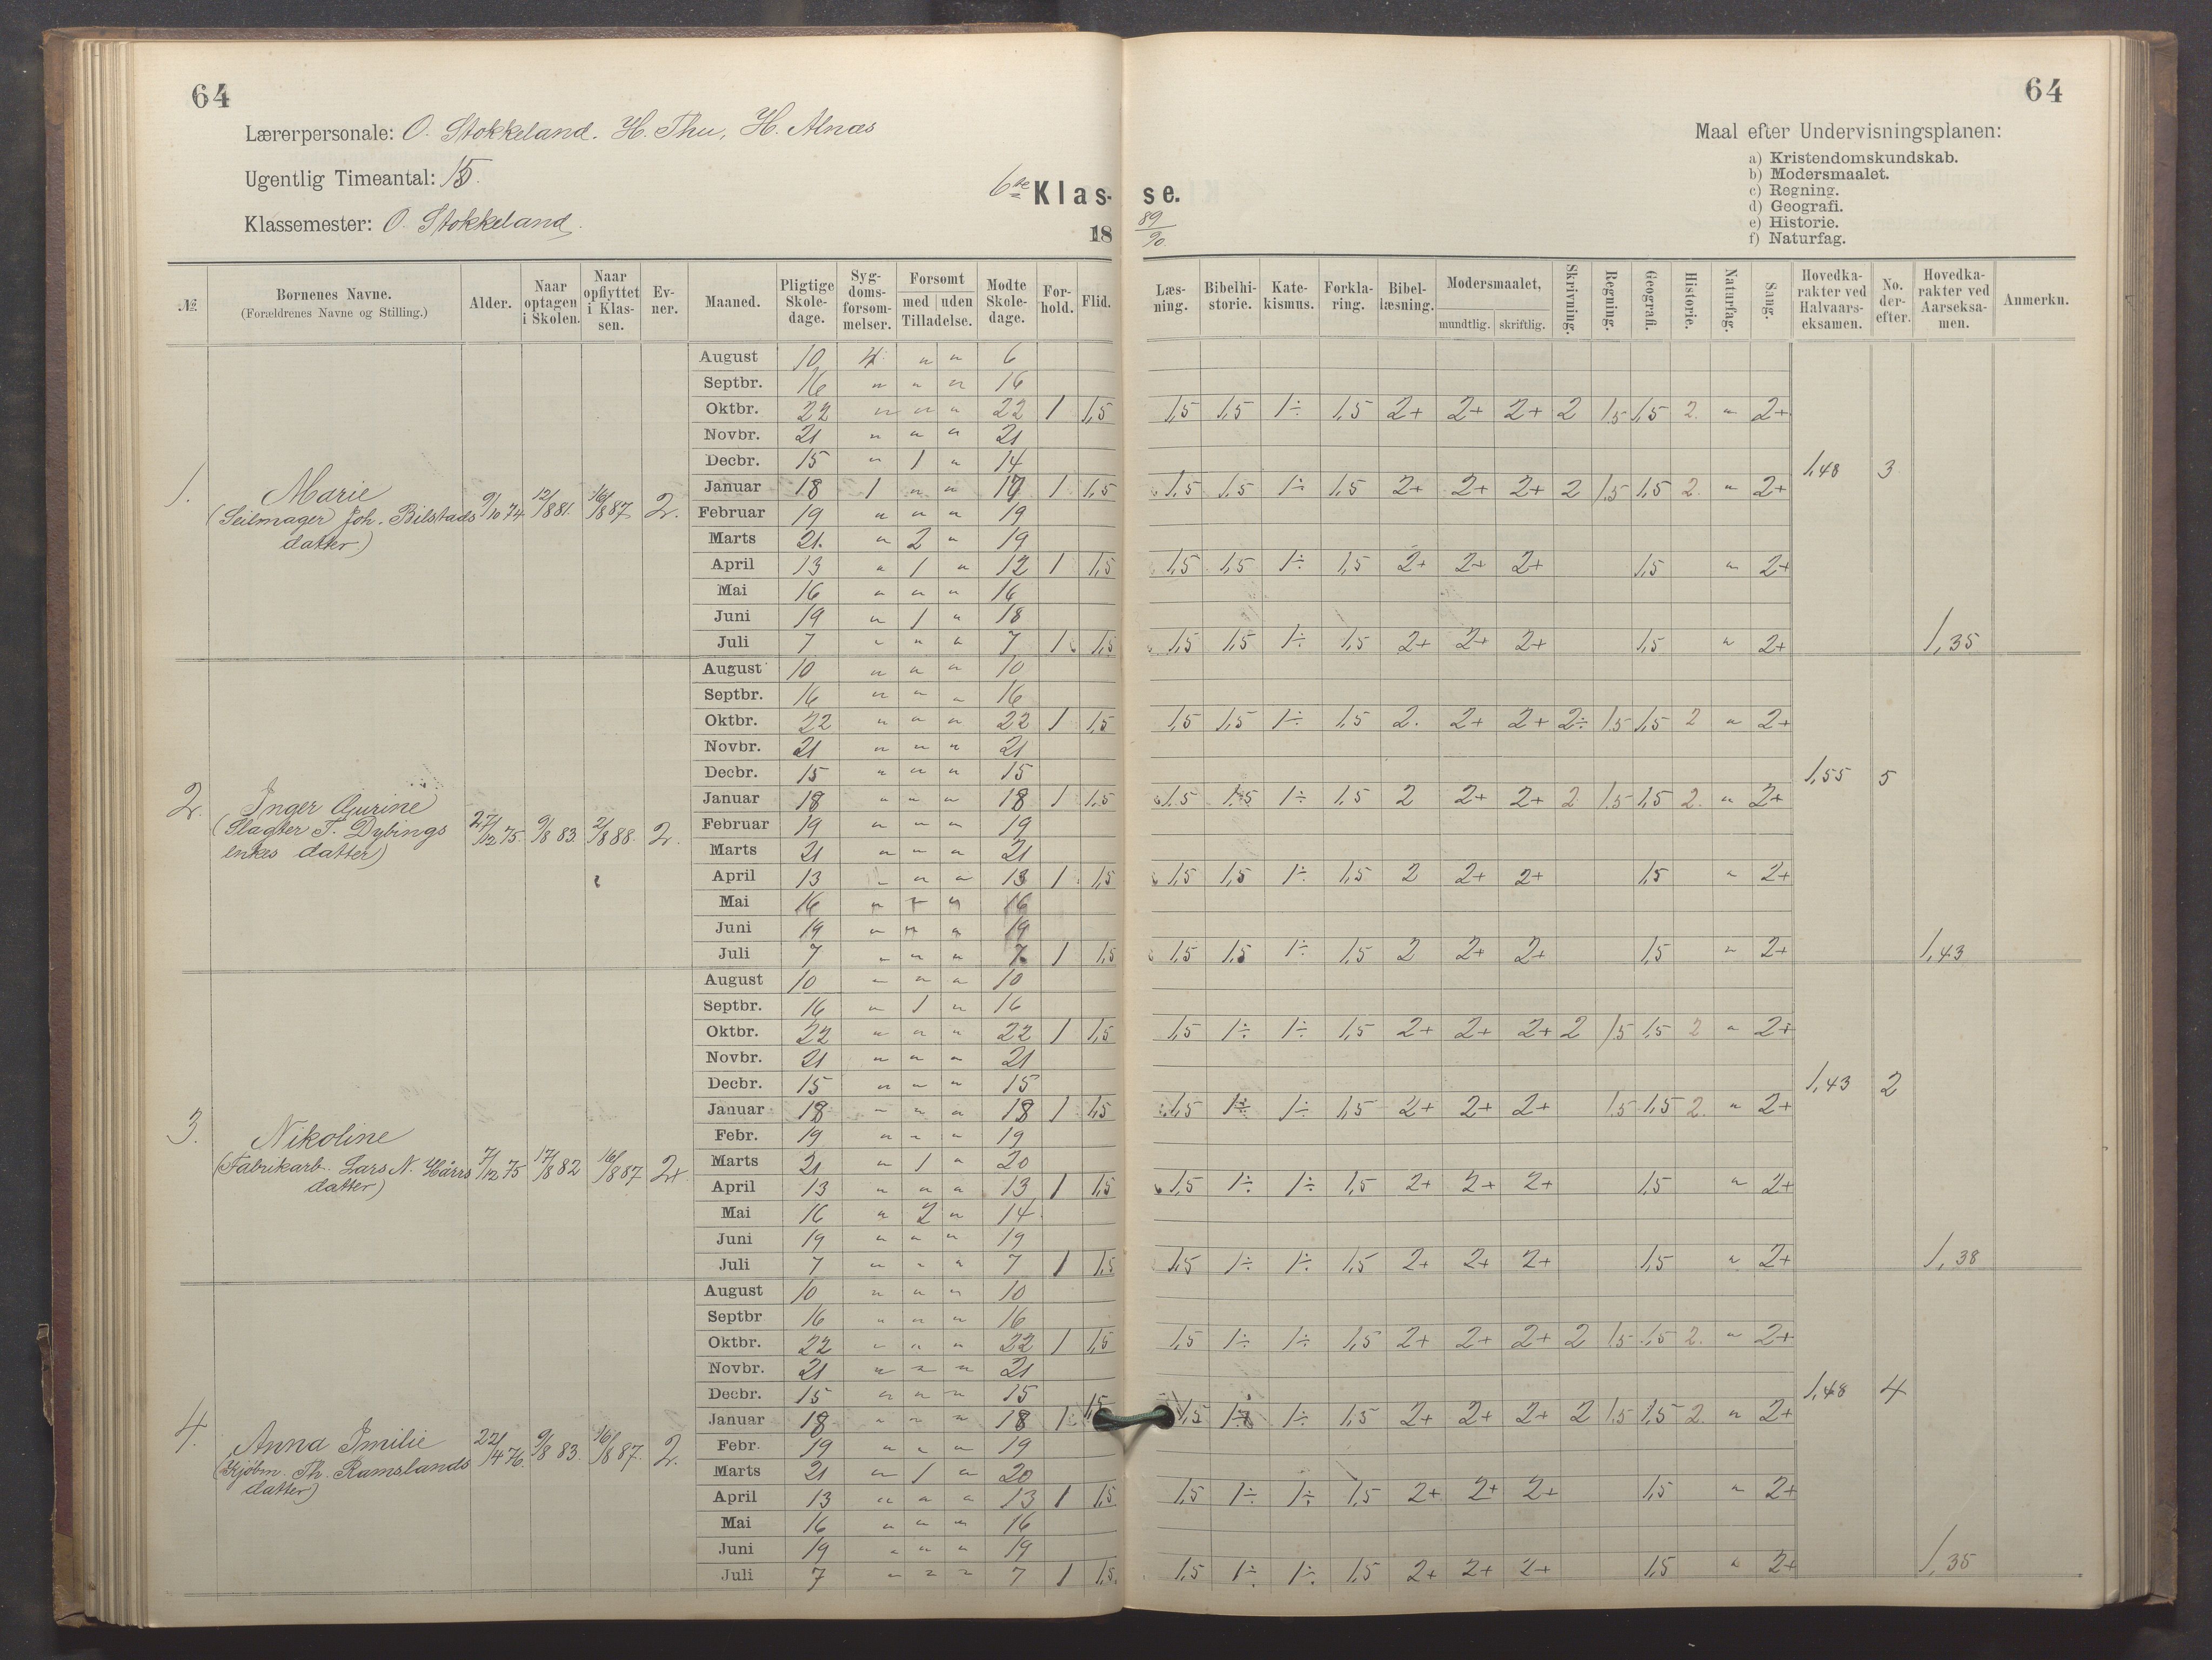 64
64
Lærerpersonale: O. Stokkeland. H. Thu, H. Alnæs
Ugentlig Timeantal: 15.
Klassemester: O. Stokkeland.
6te Klas- se.
18 89/90.
Maal efter Undervisningsplanen:
a) Kristendomskundskab.
b) Modersmaalet.
c) Regning.
d) Geografi.
e) Historie.
f) Naturfag.
№ | Børnenes Navne. (Forældrenes Navne og Stilling.) | Alder. | Naar optagen i Skolen. | Naar opflyttet i Klas- sen. | Ev- ner. | Maaned. | Pligtige Skole- dage. | Syg- doms- forsøm- melser. | Forsømt med uden Tilladelse. | Mødte Skole- dage. | For- hold. | Flid. | Læs- ning. | Bibelhi- storie. | Kate- kismus. | Forkla- ring. | Bibel- læsning. | Modersmaalet, mundtlig. skriftlig. | Skrivning. | Regning. | Geografi. | Historie. | Naturfag. | Sang. | Hovedka- rakter ved Halvaars- eksamen. | No. der- efter. | Hovedka- rakter ved Aarseksa- men. | Anmerkn.
1. Marie
(Seilmager Joh. Bilstads
datter)
9/10 74 12/8 81. 16/8 87 2.
August 10 4 " " 6
Septbr. 16 " " " 16
Oktbr. 22 " " " 22 1 1,5 1,5 1,5 1÷ 1,5 2+ 2+ 2+ 2 1.5 1,5 2. " 2+
Novbr. 21 " " " 21
Decbr. 15 " 1 " 14
1,48 3
Januar 18 1 " " 17 1 1,5 1,5 1,5 1÷ 1,5 2+ 2+ 2+ 2 1,5 1,5 2. " 2+
Februar 19 " " " 19
Marts 21. " 2 " 19
April 13 " 1 " 12 1 1,5 1,5 1,5 1÷ 1,5 2+ 2+ 2+ 1,5 " 2+
Mai 16 " " " 16
Juni 19 " 1 " 18
Juli 7 " " " 7 1 1,5 1,5 1,5 1÷ 1,5 2+ 2+ 2+ 1,5 " 2+ 1,35
2. Inger Gurine
(Slagter T. Dybings
enkes datter)
27/12 75. 9/8 83. 2/8 88. 2.
August 10 " " " 10
Septbr. 16 " " " 16
Oktbr. 22 " " " 22 1 1,5 1,5 1,5 1÷ 1,5 2. 2+ 2+ 2÷ 1.5 1,5 2 " 2+
Novbr. 21 " " " 21
Decbr. 15 " " " 15
1,55 5
Januar 18 " " " 18 1 1,5 1,5 1,5 1÷ 1,5 2 2+ 2+ 2 1,5 1,5 2. " 2+
Februar 19 " " " 19
Marts 21 " " " 21
April 13 " " " 13 1 1,5 1,5 1,5 1÷ 1,5 2 2+ 2+ 1,5 " 2+
Mai 16 " " " 16
Juni 19 " " " 19
Juli 7 " " " 7 1 1,5 1,5 1,5 1÷ 1,5 2 2+ 2+ 1,5 " 2+ 1,43
3. Nikoline
(Fabrikarb. Lars N. Hårrs
datter)
7/12 75 17/8 82 16/8 87 2+.
August 10 " " " 10
Septbr. 16 " 1 " 16
Oktbr. 22 " " " 22 1 1,5 1,5 1÷ 1÷ 1,5 2+ 2+ 2+ 2 1,5 1,5 2 " 2+
Novbr. 21 " " " 21
Decbr. 15 " " " 15
1,43 2
Januar 18 " " " 18 1 1,5 1,5 1÷ 1÷ 1,5 2+ 2+ 2+ 1,5 1,5 2. " 2+
Febr. 19 " " " 19
Marts 21 " 1 " 20
April 13 " " " 13 1 1,5 1,5 1÷ 1÷ 1,5 2+ 2+ 2+ 1,5 " 2+
Mai 16 " 2 " 14
Juni 19 " " " 19
Juli 7 " " " 7 1 1,5 1,5 1÷ 1÷ 1,5 2+ 2+ 2+ 1,5 " 2+ 1,38
4. Anna Emilie
(Kjøbm. Th. Ramslands
datter)
22/4 76. 9/8 83. 16/8 87. 2.
August 10 " " " 10
Septbr 16 " " " 16
Oktbr. 22 " " " 22 1 1,5 1,5 1÷ 1÷ 1,5 2+ 2+ 2+ 2 1,5 1,5 2. " 2+
Novbr. 21 " " " 21
Decbr. 15 " " " 15
1,48 4
Januar 18 " " " 18 1 1,5 1,5 1÷ 1÷ 1,5 2+ 2+ 2+ 2 1,5 1,5 2. " 2+
Febr. 19 " " " 19
Marts 21 " 1 " 20
April 13 " " " 13 1 1,5 1,5 1÷ 1÷ 1,5 2+ 2+ 2+ 1,5 " 2+
Mai 16 " " " 16
Juni 19 " " " 19
Juli 7 " " " 7 1 1,5. 1,5 1÷ 1÷ 1,5 2+ 2+ 2+ 1,5 " 2+ 1,35